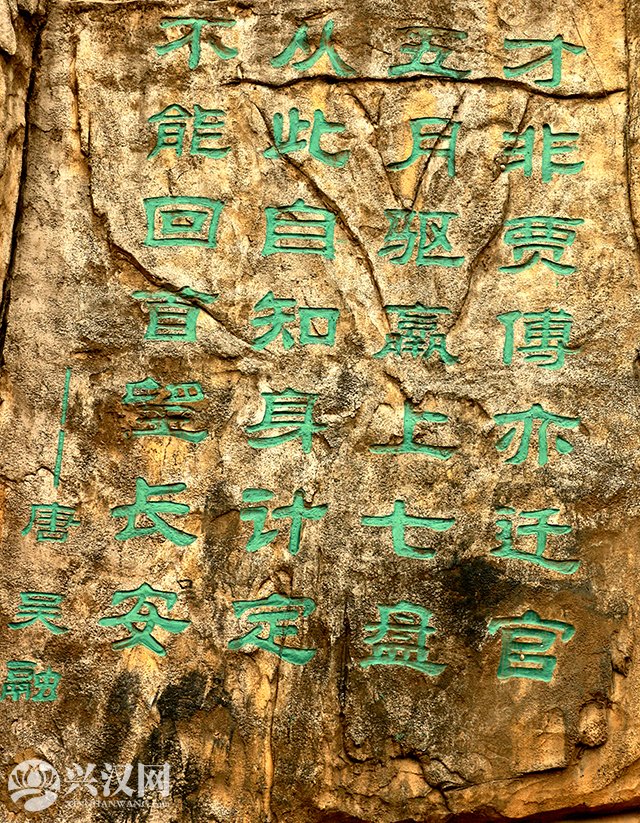 才非贾傅亦迁官
五月驱赢上七盘
从此自知身计定
不能回首望长安
——唐 吴融
兴汉网
XINHANWANG.com